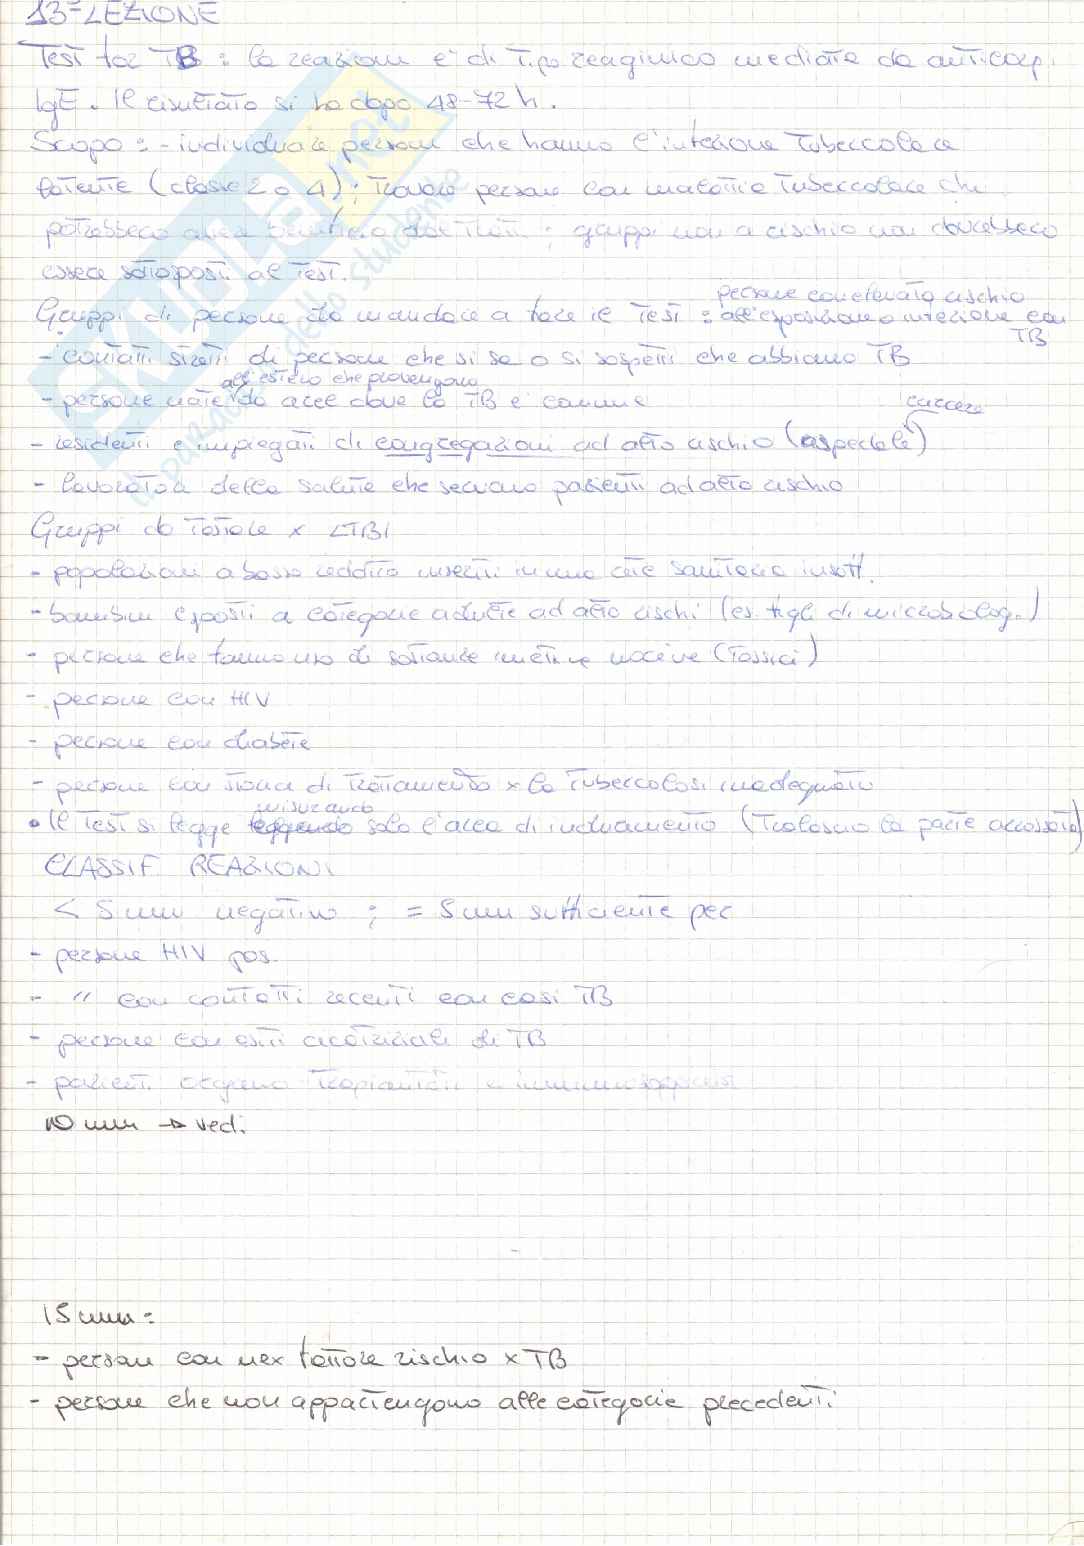 13ª LEZIONE
Test for TB : la reazione è di tipo reaginico mediata da anticorpi
IgE. Il risultato si ha dopo 48-72 h.
Scopo : - individuare persone che hanno l'infezione Tubercolare
latente (classe 2 o 4) ; trovare persone con malattia Tubercolare che
potrebbero avere beneficio dal ; gruppi non a rischio non dovrebbero
essere sottoposti al Test.
persone con elevato rischio
Gruppi di persone da mandare a fare il Test : all'esposizione o infezione con
TB
- contatti stretti di persone che si sa o si sospetti che abbiano TB
all'estero che provengono
- persone nate da aree dove la TB è comune
carcere
- residenti e impiegati di congregazioni ad alto rischio (ospedale)
- lavoratori della salute che servono pazienti ad alto rischio
Gruppi da Testare x LTBI
- popolazioni a basso reddito inseriti in una sanitaria insuff.
- bambini esposti a categorie adulte ad alto rischi (es. figli di microbiolog.)
- persone che fanno uso di sostanze nocive (Tossici)
- persone con HIV
- persone con diabete
- persone con storia di Trattamento x la Tubercolosi inadeguato
misurando
• Il Test si legge leggendo solo l'area di indurimento (Tralascio la parte arrossata)
CLASSIF. REAZIONI
< 5 mm negativo ; = 5 mm sufficiente per
- persone HIV pos.
- " con contatti recenti con casi TB
- persone con esiti cicatriziali di TB
- pazienti organo Trapiantati e immunosoppressi
10 mm → vedi
15 mm :
- persone con nex fattore rischio x TB
- persone che non appartengono alle categorie precedenti
SKUOLA.net
il paradiso dello studente